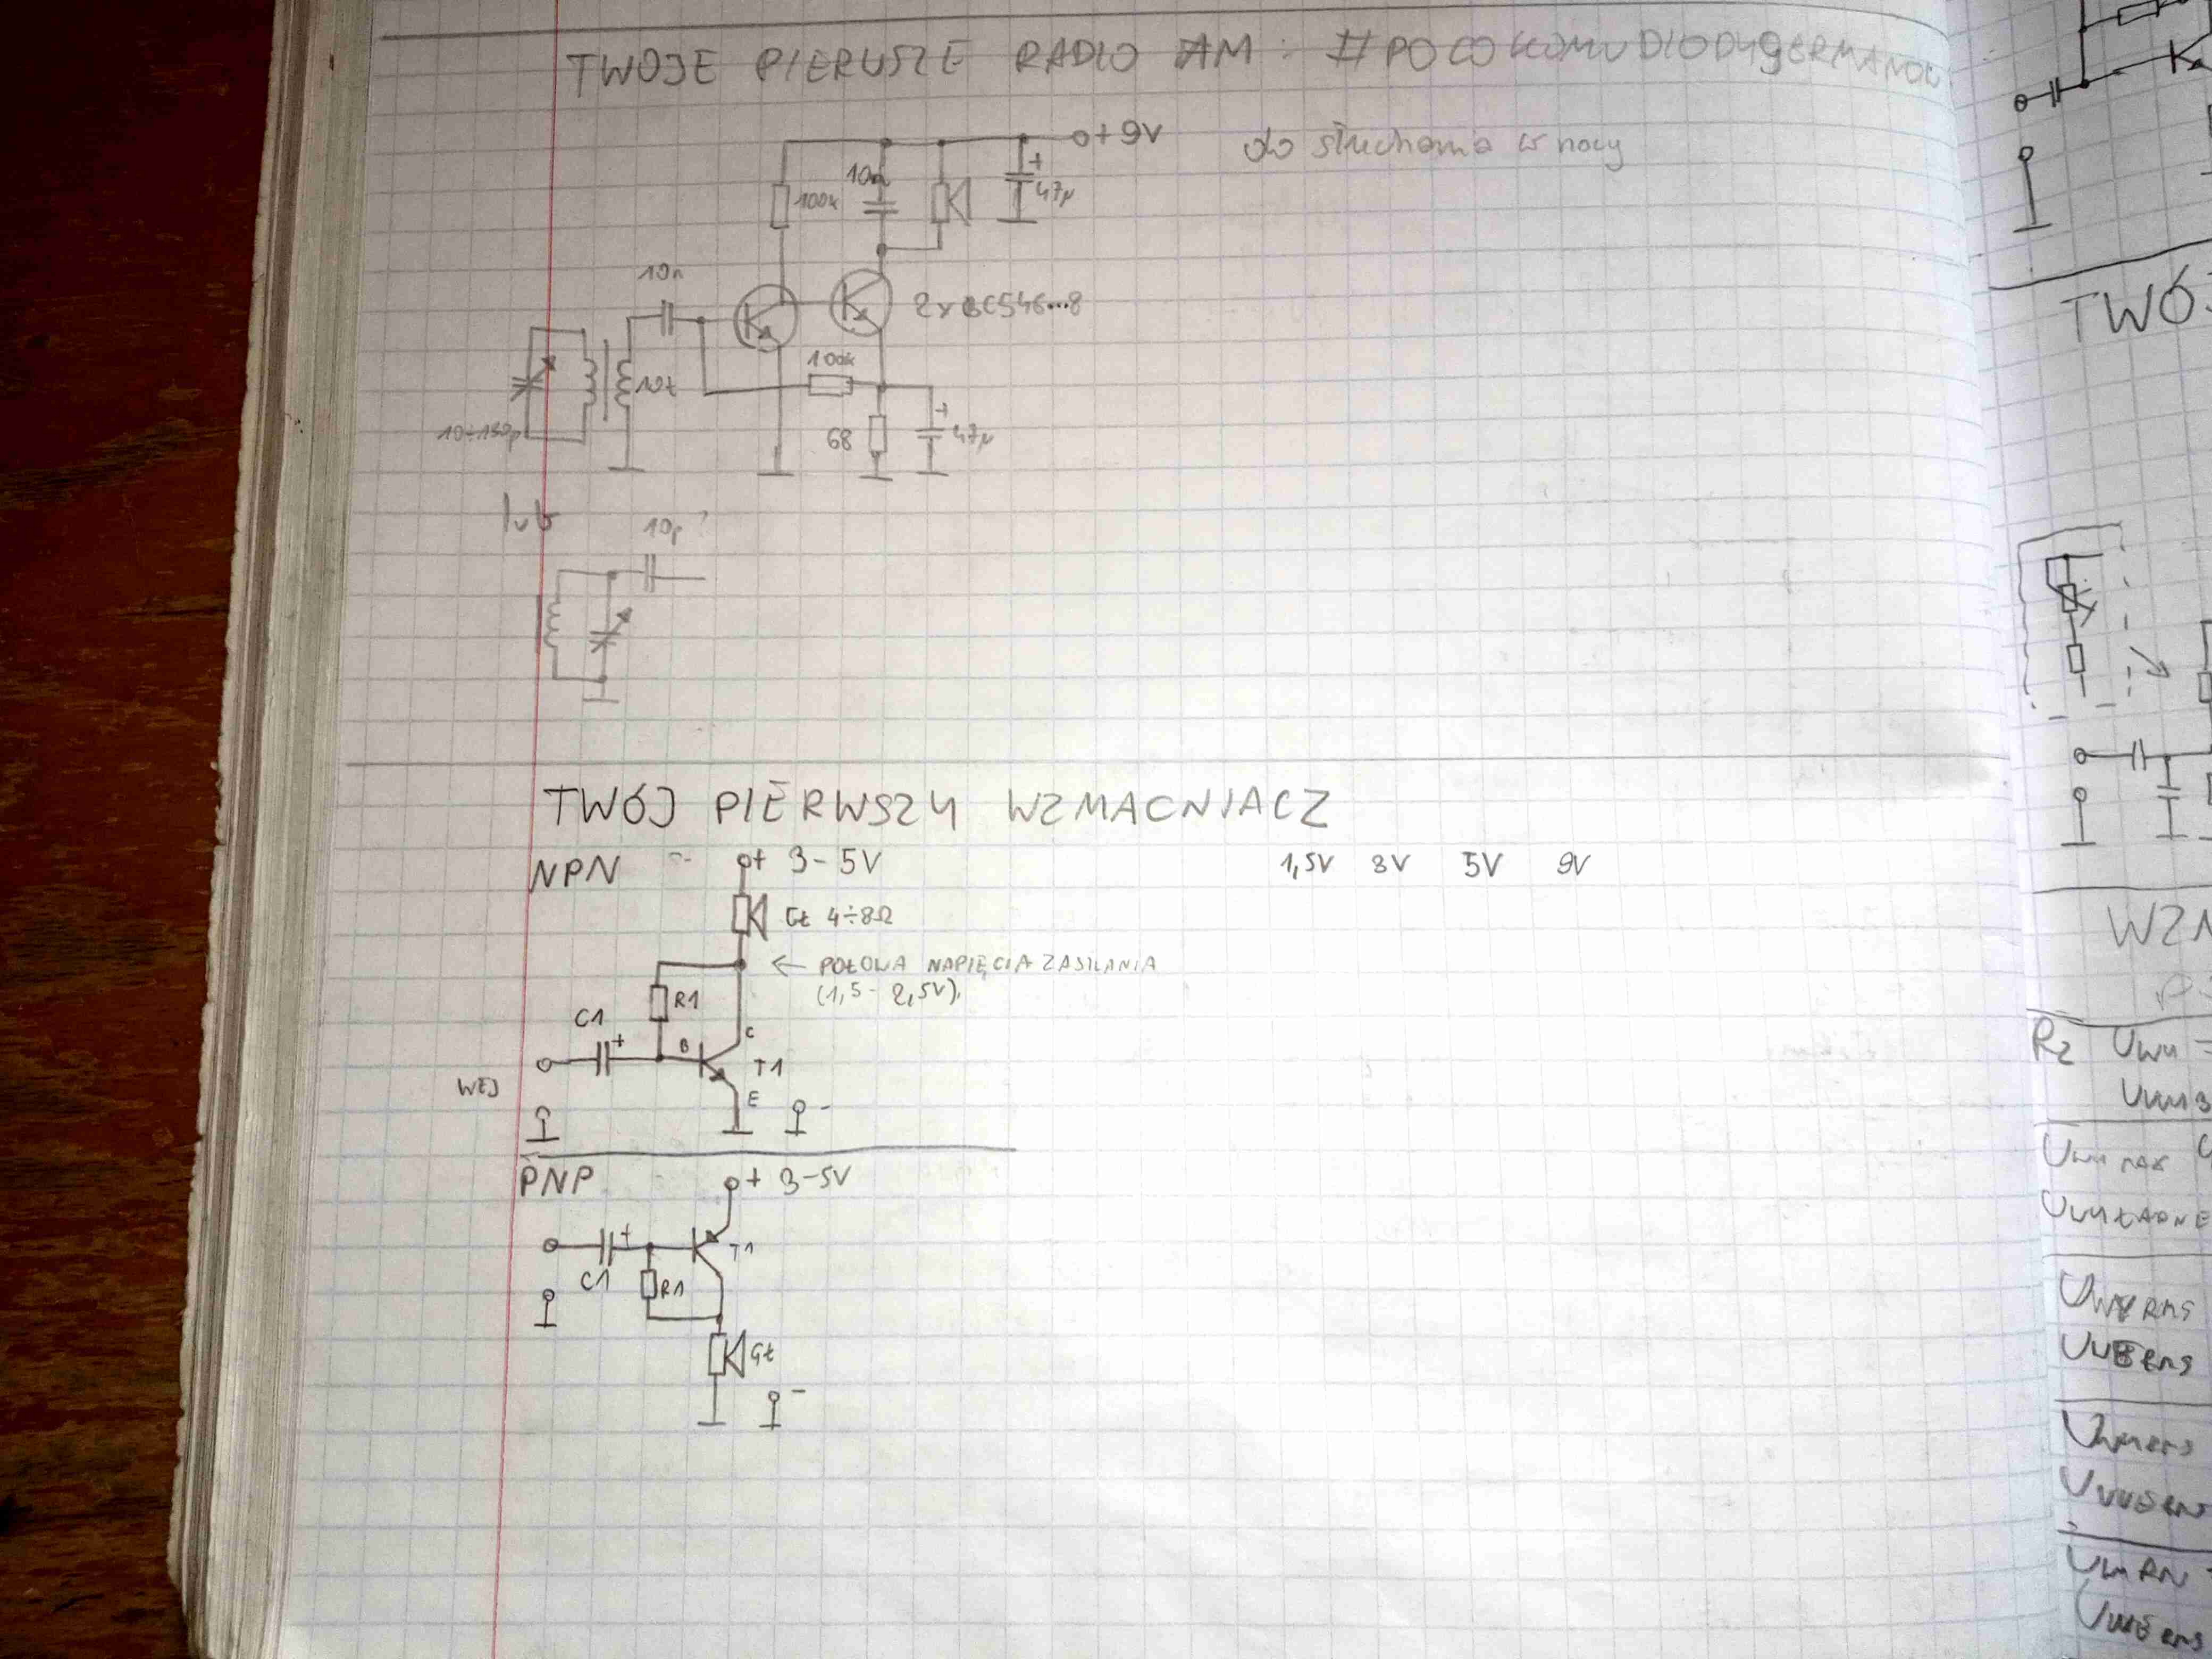 TWOJE PIERWSZE RADIO AM: #POCOKOMUDIODYgERMANOW
do słuchania w nocy
+9V
100k
10n
+
47µ
10n
2xBC546...8
10÷130p
10t
100k
68
+
47µ
lub
10p?
TWÓJ PIERWSZY WZMACNIACZ
NPN
+ 3-5V
1,5V 3V 5V 9V
Gł 4÷8Ω
← POŁOWA NAPIĘCIA ZASILANIA
(1,5-2,5V),
R1
C1
+
B
C
T1
E
WEJ
-
PNP
+ 3-5V
+
C1
R1
T1
Gł
-
TWÓJ
WZM
R2 Uwy =
Uwy MAX
UwyŁADNE
UWYRMS
UWERMS